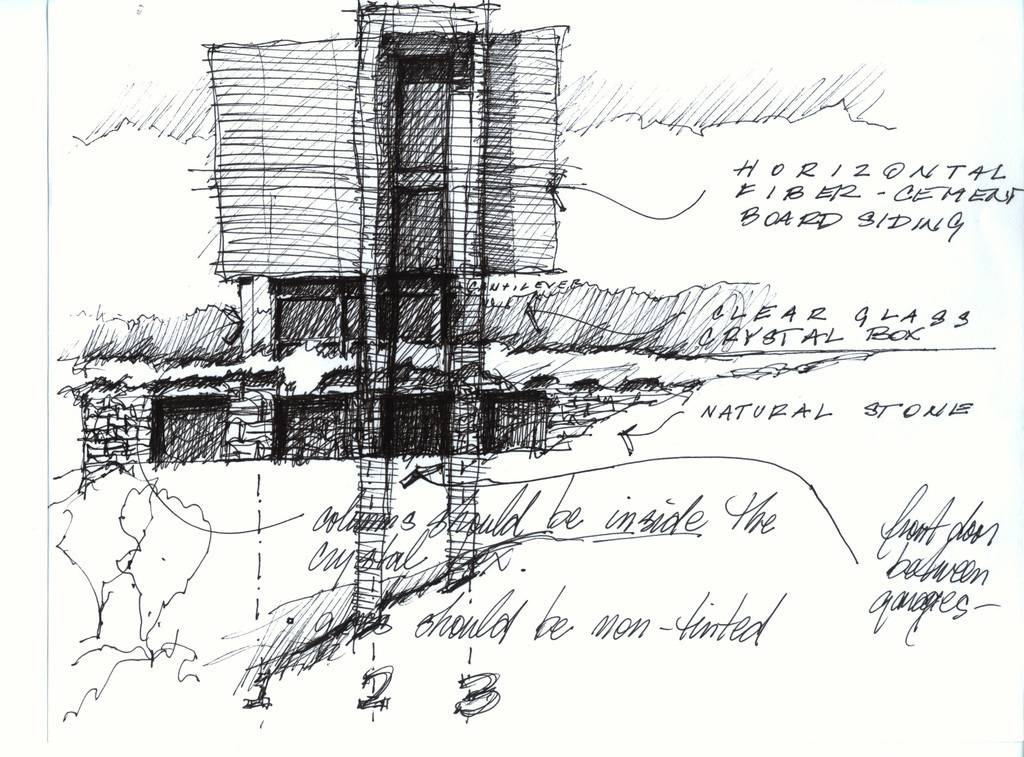 HORIZONTAL
FIBER-CEMENT
BOARD SIDING
CANTILEVER
CLEAR GLASS
CRYSTAL BOX
NATURAL STONE
columns should be inside the
crystal box.
front door
between
garages-
• glass should be non-tinted
1 2 3